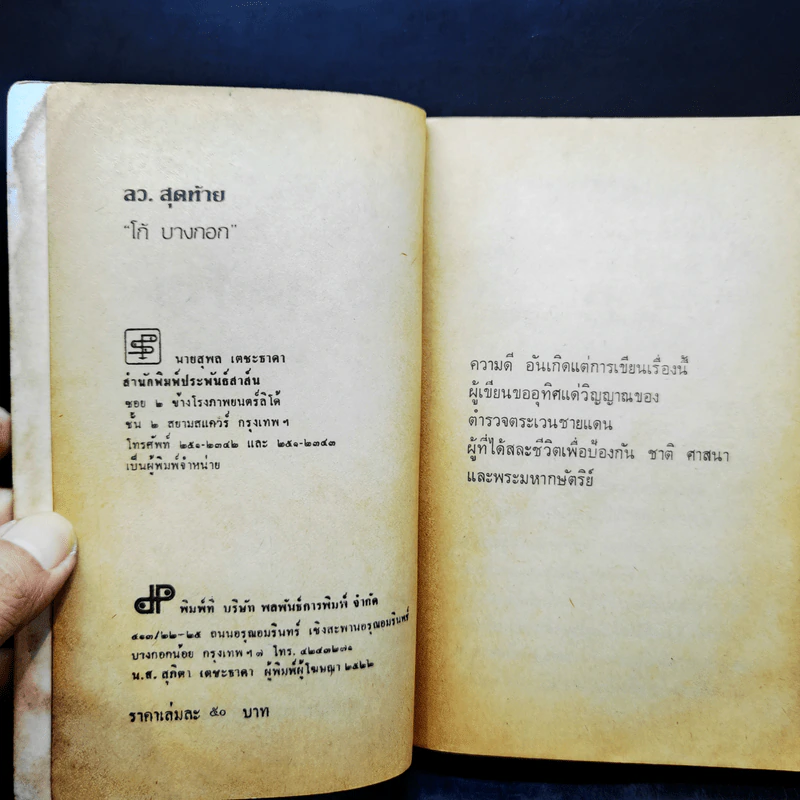 ลว. สุดท้าย
"โก้ บางกอก"
นายสุพล เตชะธาดา
สำนักพิมพ์ประพันธ์สาส์น
ซอย ๒ ข้างโรงภาพยนตร์ลิโด้
ชั้น ๒ สยามสแควร์ กรุงเทพ ฯ
โทรศัพท์ ๒๕๑-๒๓๔๒ และ ๒๕๑-๒๓๔๓
เป็นผู้พิมพ์จำหน่าย
dP พิมพ์ที่ บริษัท พลพันธ์การพิมพ์ จำกัด
๕๑๓/๒๒-๒๕ ถนนอรุณอมรินทร์ เชิงสะพานอรุณอมรินทร์
บางกอกน้อย กรุงเทพ ฯ ๗ โทร. ๔๒๔๓๒๗๑
น.ส. สุภิตา เตชะธาดา ผู้พิมพ์ผู้โฆษณา ๒๕๒๒
ราคาเล่มละ ๕๐ บาท
ความดี อันเกิดแต่การเขียนเรื่องนี้
ผู้เขียนขออุทิศแด่วิญญาณของ
ตำรวจตระเวนชายแดน
ผู้ที่ได้สละชีวิตเพื่อป้องกัน ชาติ ศาสนา
และพระมหากษัตริย์